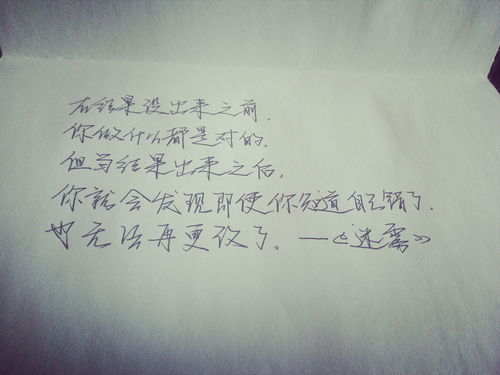 在结果没出来之前,
你做什么都是对的,
但当结果出来之后,
你就会发现即便你知道自己错了,
也无法再更改了。——《迷雾》